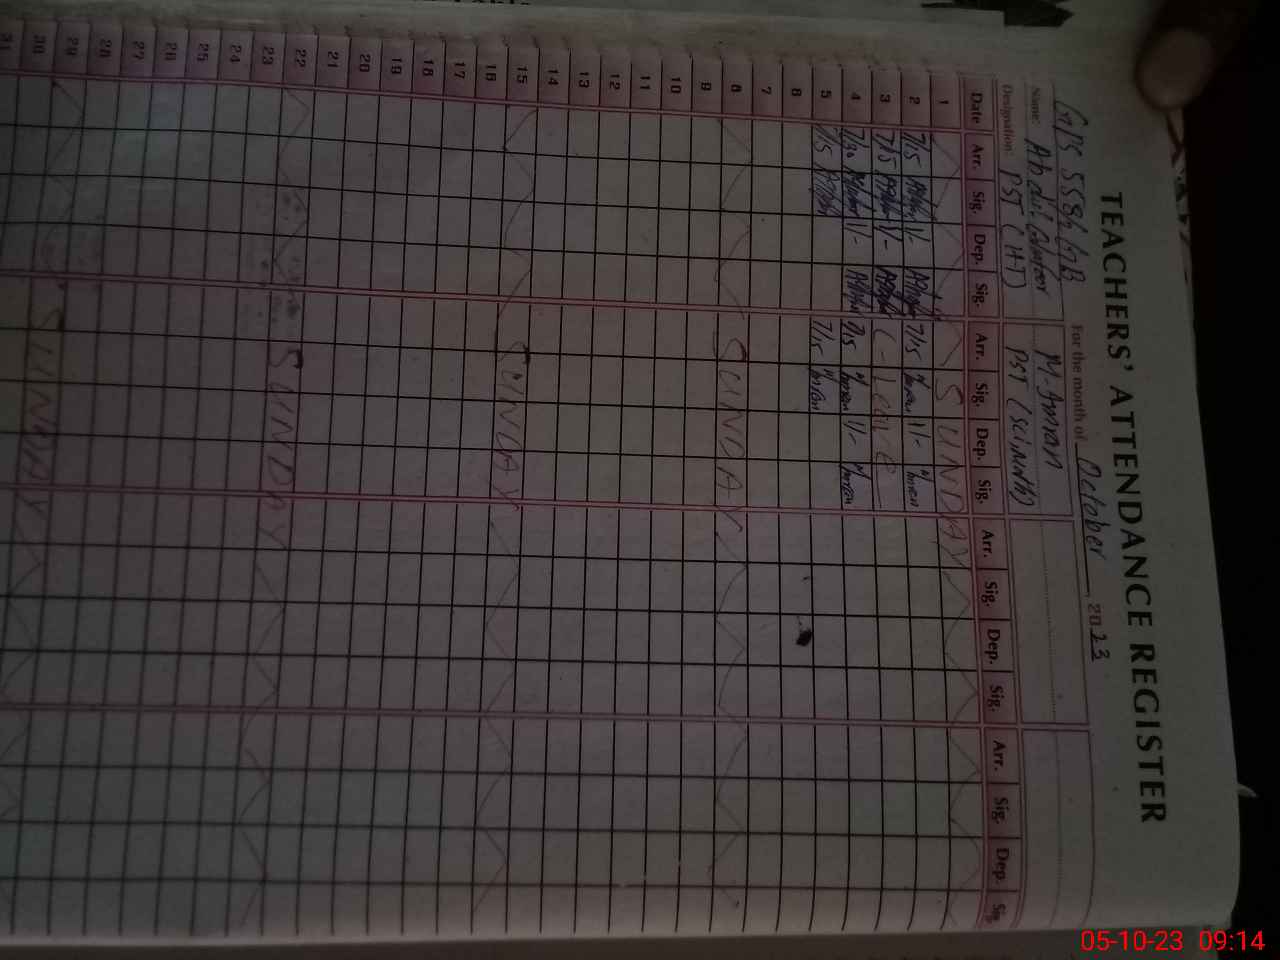 TEACHERS' ATTENDANCE REGISTER
GPS 558/GB For the month of October, 2023
Name: Abdul Ghafoor M-Amran
Designation: PST (HT) PST (Sci Math)
Date Arr. Sig. Dep. Sig. Arr. Sig. Dep. Sig. Arr. Sig. Dep. Sig. Arr. Sig. Dep. Sig.
1 SUNDAY
2 7/15 1/- 7/15 1/-
3 7/15 1/- C-Leave
4 7/30 1/- 7/15 1/-
5 7/15 7/15
6
7
8 SUNDAY
9
10
11
12
13
14
15 SUNDAY
16
17
18
19
20
21
22 SUNDAY
23
24
25
26
27
28
29 SUNDAY
30
31
05-10-23 09:14